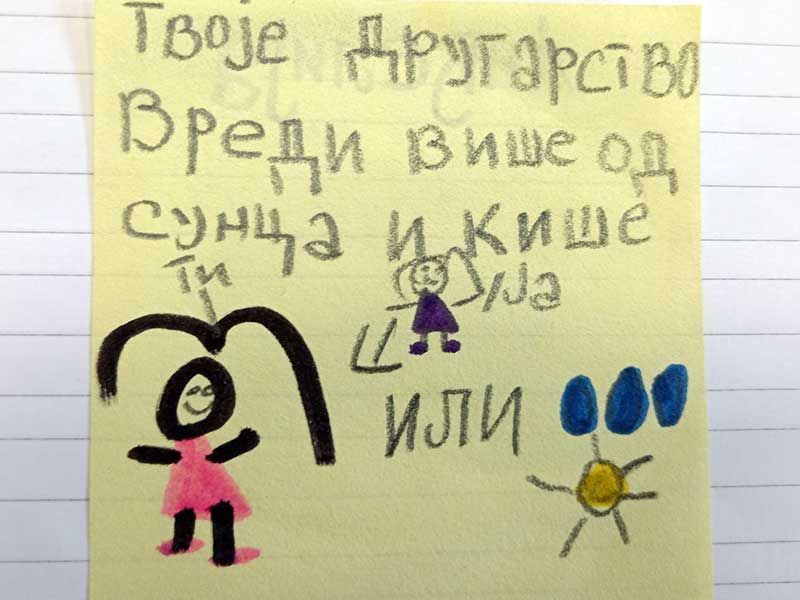 Твоје другарство
Вреди више од
сунца и кише
ти
ја
или